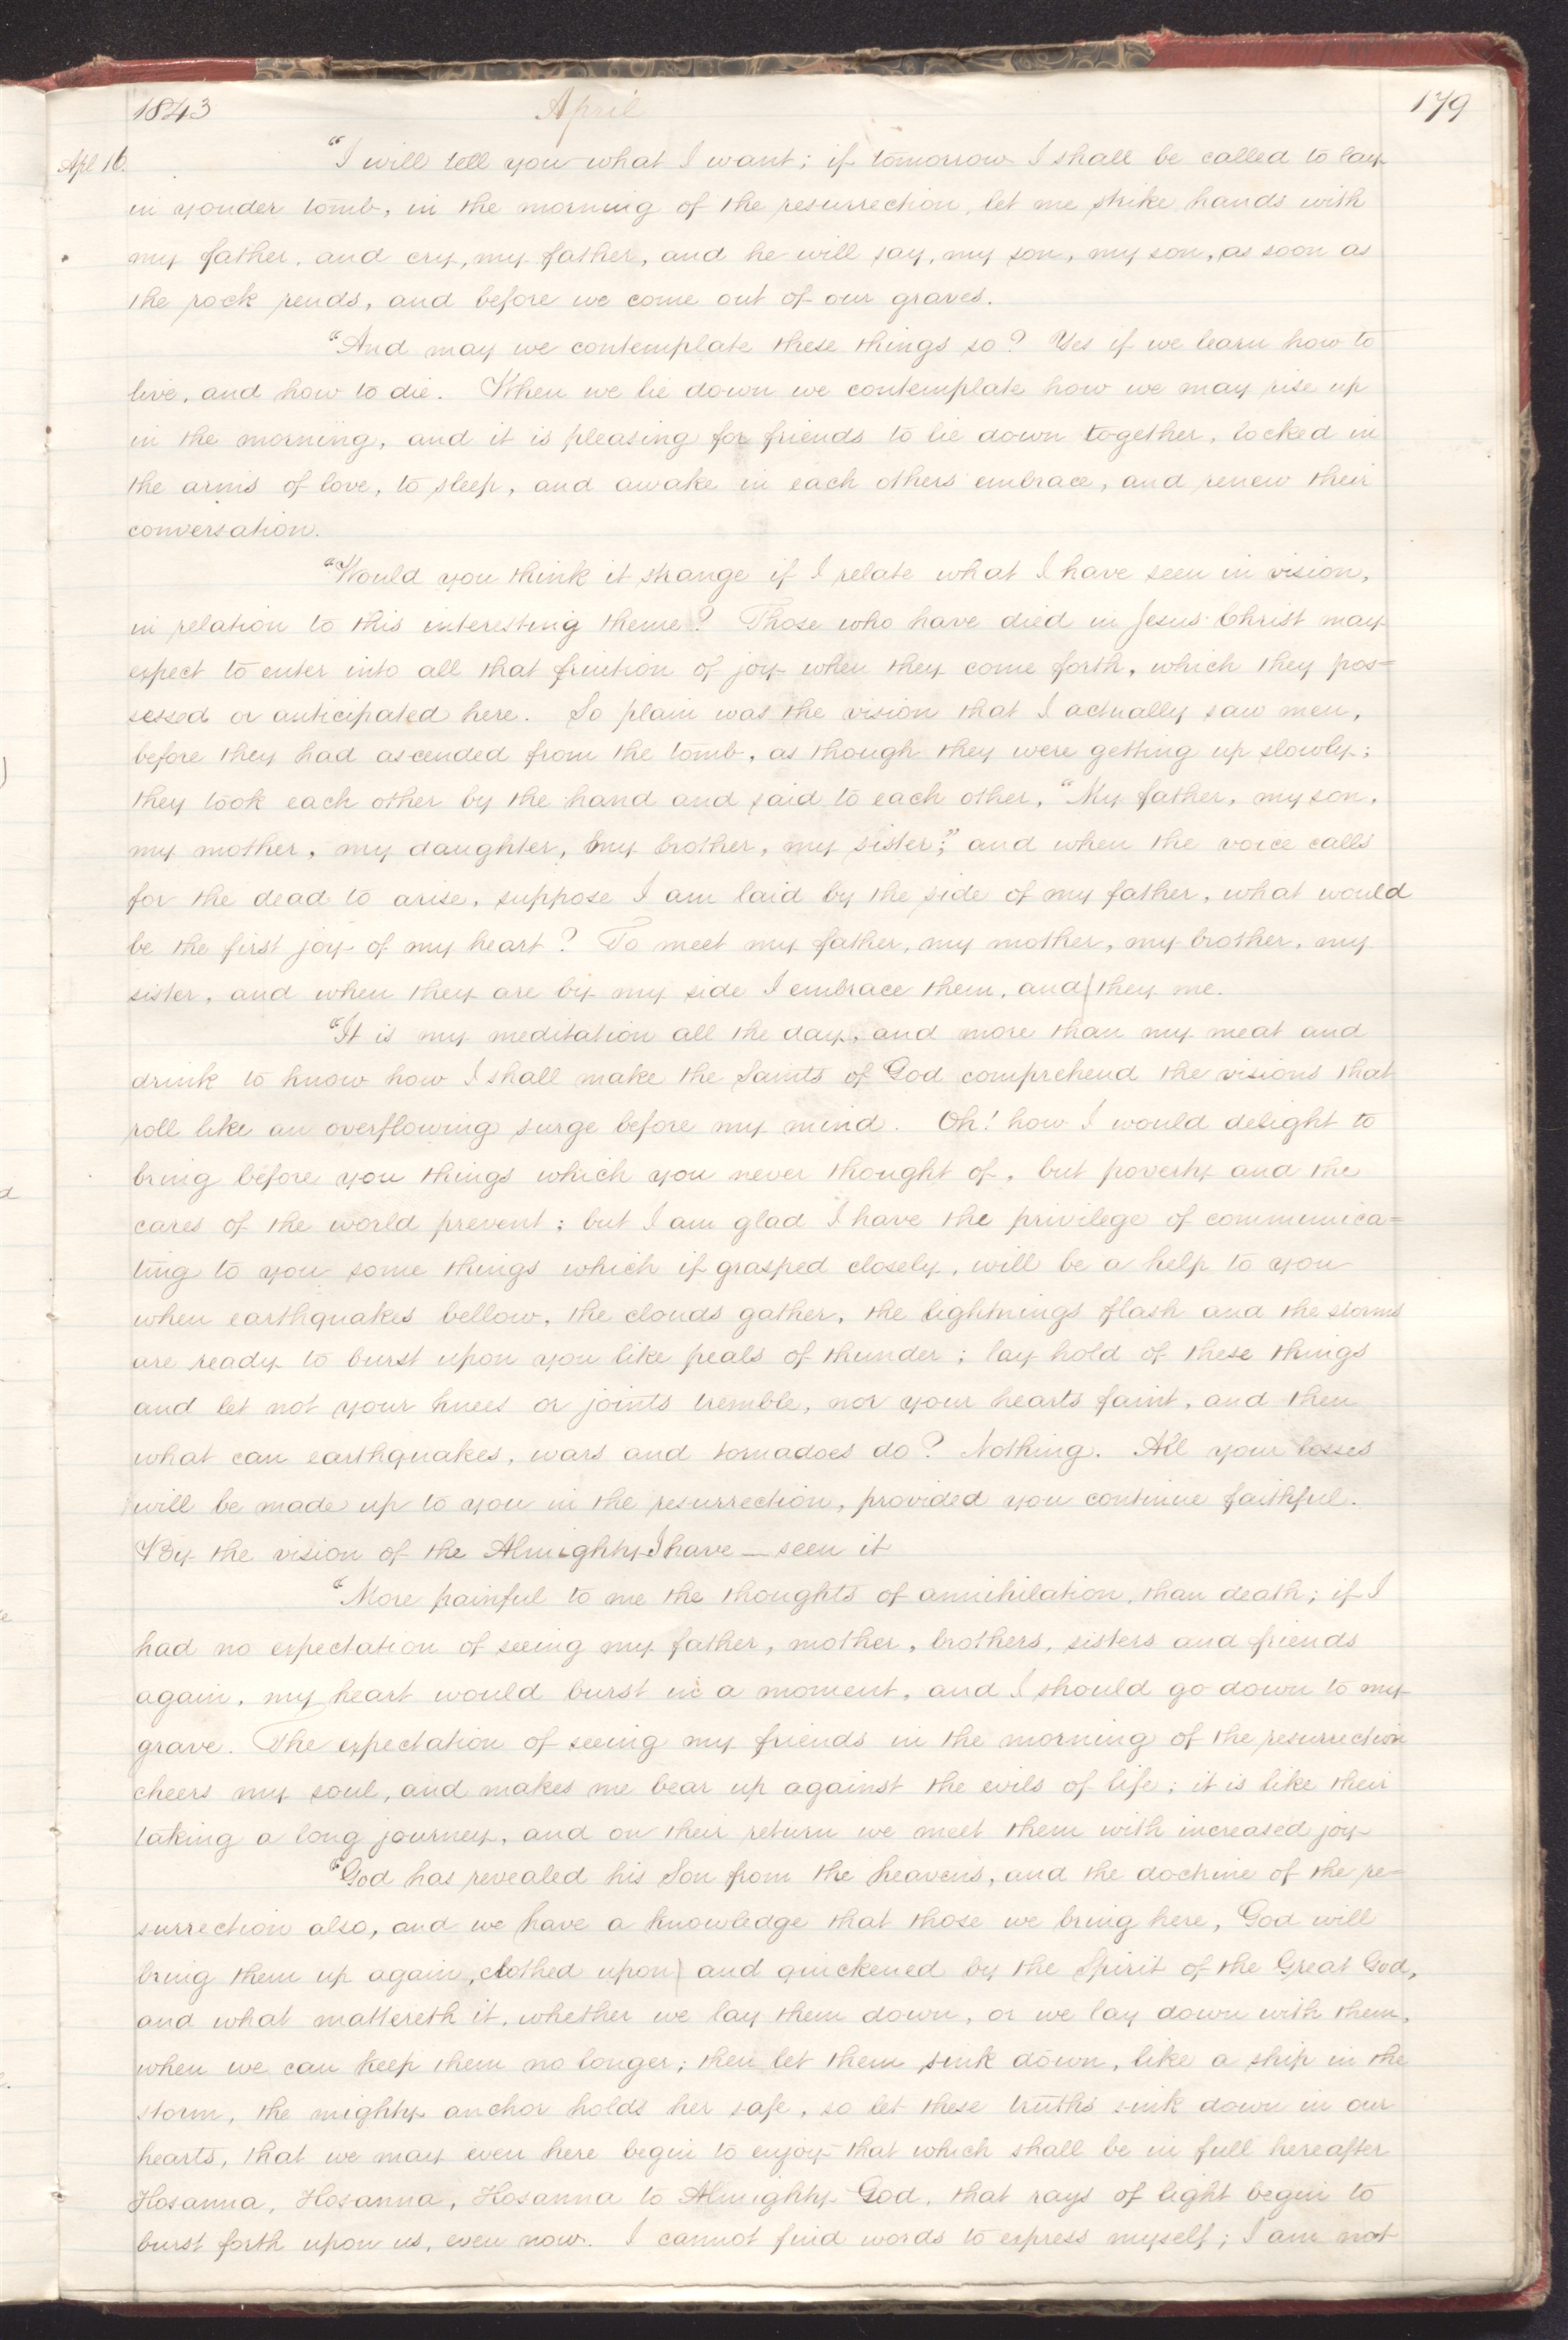 1843 April 179
Apl 16. "I will tell you what I want; if tomorrow I shall be called to lay
in yonder tomb, in the morning of the resurrection, let me strike hands with
my father, and cry, my father, and he will say, my son, my son, as soon as
the rock rends, and before we come out of our graves.
"And may we contemplate these things so? Yes if we learn how to
live, and how to die. When we lie down we contemplate how we may rise up
in the morning, and it is pleasing for friends to lie down together, locked in
the arms of love, to sleep, and awake in each others embrace, and renew their
conversation.
"Would you think it strange if I relate what I have seen in vision,
in relation to this interesting theme? Those who have died in Jesus Christ may
expect to enter into all that fruition of joy when they come forth, which they pos=
sessed or anticipated here. So plain was the vision that I actually saw men,
before they had ascended from the tomb, as though they were getting up slowly;
they took each other by the hand and said to each other, "My father, my son,
my mother, my daughter, my brother, my sister;" and when the voice calls
for the dead to arise, suppose I am laid by the side of my father, what would
be the first joy of my heart? To meet my father, my mother, my brother, my
sister, and when they are by my side I embrace them, and they me.
"It is my meditation all the day, and more than my meat and
drink to know how I shall make the Saints of God comprehend the visions that
roll like an overflowing surge before my mind. Oh! how I would delight to
bring before you things which you never thought of, but poverty and the
cares of the world prevent; but I am glad I have the privilege of communica=
ting to you some things which if grasped closely, will be a help to you
when earthquakes bellow, the clouds gather, the lightnings flash and the storms
are ready to burst upon you like peals of thunder; lay hold of these things
and let not your knees or joints tremble, nor your hearts faint, and then
what can earthquakes, wars and tornadoes do? Nothing. All your losses
will be made up to you in the resurrection, provided you continue faithful.
By the vision of the Almighty I have — seen it
"More painful to me the thoughts of annihilation, than death; if I
had no expectation of seeing my father, mother, brothers, sisters and friends
again, my heart would burst in a moment, and I should go down to my
grave. The expectation of seeing my friends in the morning of the resurrection
cheers my soul, and makes me bear up against the evils of life; it is like their
taking a long journey, and on their return we meet them with increased joy
"God has revealed his Son from the heavens, and the doctrine of the re=
surrection also, and we have a knowledge that those we bring here, God will
bring them up again, clothed upon and quickened by the Spirit of the Great God,
and what mattereth it, whether we lay them down, or we lay down with them,
when we can keep them no longer; then let them sink down, like a ship in the
storm, the mighty anchor holds her safe, so let these truths sink down in our
hearts, that we may even here begin to enjoy that which shall be in full hereafter
Hosanna, Hosanna, Hosanna to Almighty God, that rays of light begin to
burst forth upon us, even now. I cannot find words to express myself; I am not